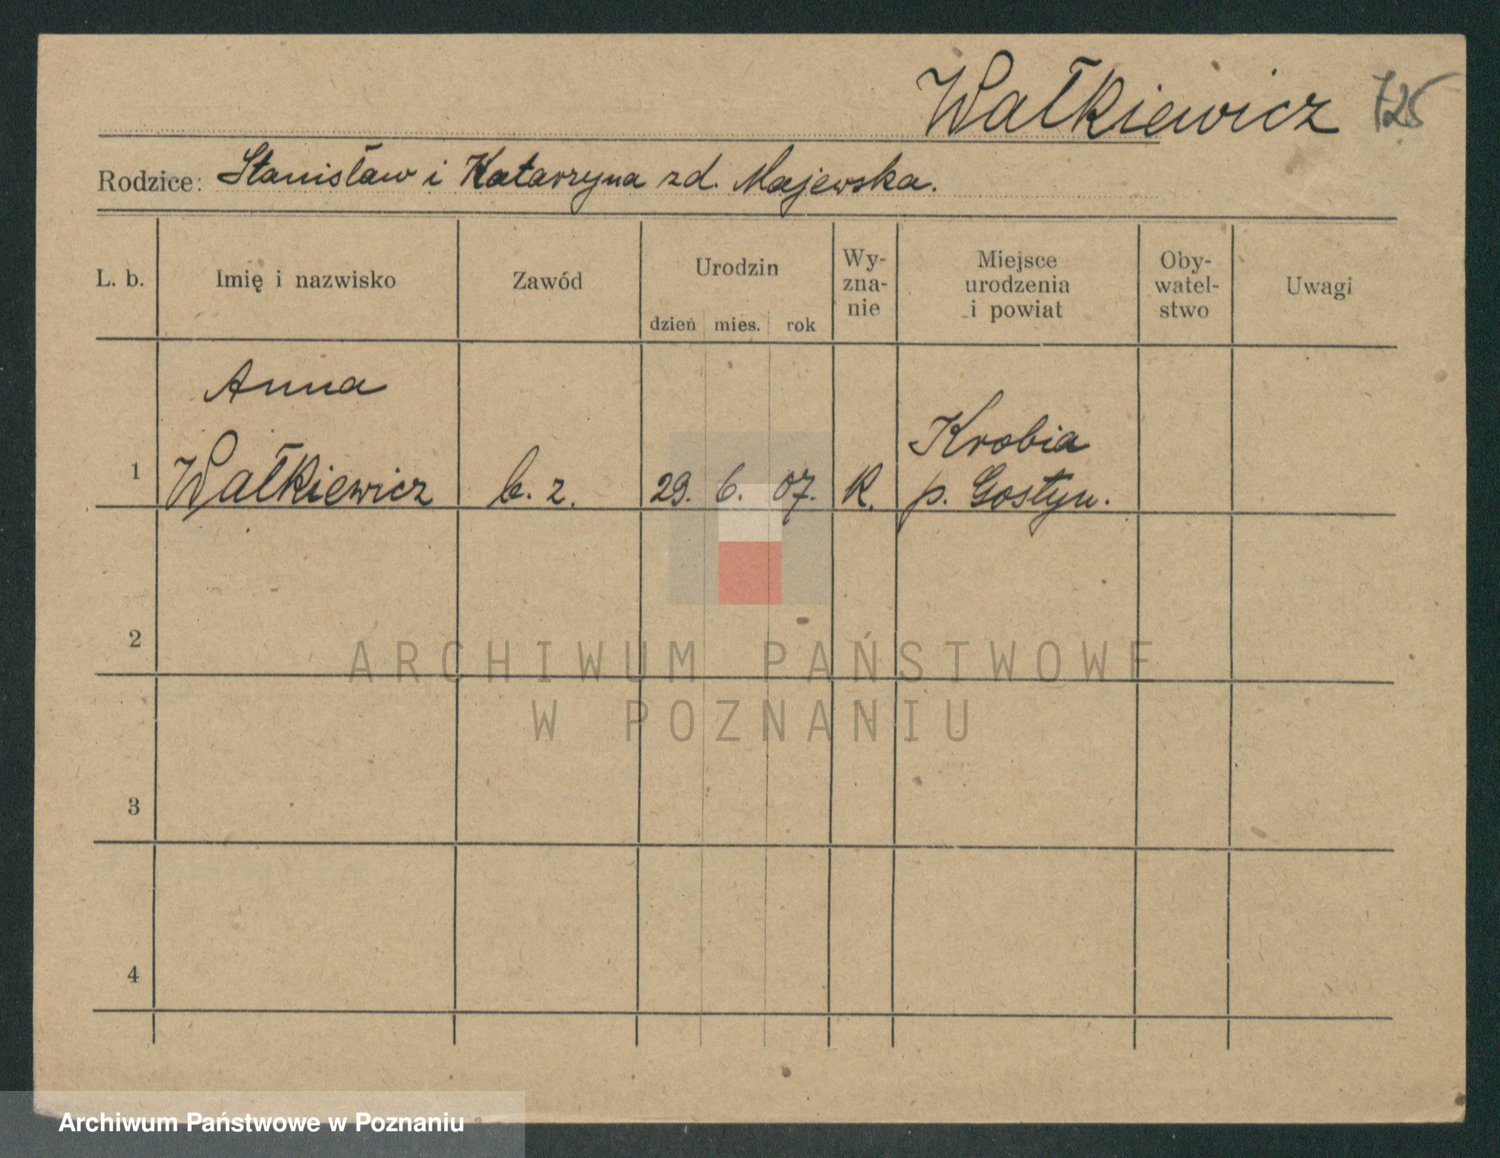 Wałkiewicz 725
Rodzice: Stanisław i Katarzyna zd. Majewska.
L. b. Imię i nazwisko Zawód Urodzin Wy-
zna-
nie Miejsce
urodzenia
i powiat Oby-
watel-
stwo Uwagi
dzień mies. rok
Anna
1 Wałkiewicz b. z. 29. 6. 07. R. Krobia
p. Gostyn.
2
ARCHIWUM PAŃSTWOWE
W POZNANIU
3
4
Archiwum Państwowe w Poznaniu